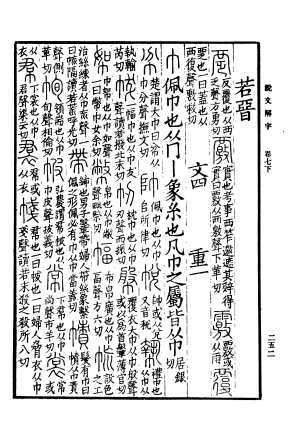 說文解字 卷七下 二五二
若晉
覂反覆也从襾乏聲方勇切覈實也考事襾笮邀遮其辭得實曰覈从襾敫聲下革切䨣覈或从雨覆
覂也一曰蓋也从襾復聲敷救切
文四 重一
巾佩巾也从冂丨象糸也凡巾之屬皆从巾居銀切
帉楚謂大巾曰帉从巾分聲撫文切帥佩巾也从巾𠂤所律切帨帥或从兌又音稅𢄢禮巾也从巾
执輸芮切帗一幅巾也从巾犮聲讀若撥北末切㠴枕巾也从巾刃聲而振切幋覆衣大巾从巾般聲或以爲首鞶薄官切
帤巾帤也从巾如聲一曰幣巾女余切幣帛也从巾敝聲毗祭切幅布帛廣也从巾畐聲方六切㡆設色之工
治絲練者从巾㡆聲一曰㡆隔讀若荒呼光切帶紳也男子鞶帶婦人帶絲象繫佩之形佩必有巾从巾當蓋切幘髮有巾曰幘从巾責
聲側革切㡒領耑也从巾旬聲相倫切帔弘農謂帬帔也从巾皮聲披義切常下帬也从巾尚聲市羊切裳常或
从衣帬下裳也从巾君聲渠云切裠帬或从衣㡞帬也一曰帔也一曰婦人脅衣从巾戔聲讀若末殺之殺所八切